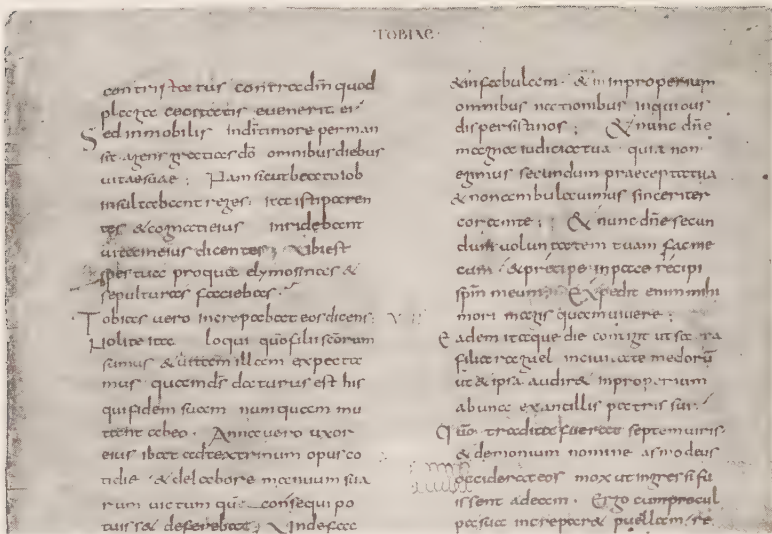 TOBIAE
contristatus contra dm quod
plaga caecitatis evenerit ei
Sed inmobilis in di timore perman
sit agens gratias do omnibus diebus
vitae suae ; Nam sicut beato iob
insultabant reges : ita isti paren
tes & cognati eius inridebant
vitam eius dicentes ; Ubi est
spes tua pro qua elymosinas &
sepulturas faciebas .
Tobias vero increpabat eos dicens :
Nolite ita loqui quo filii scorum
sumus & vitam illam expecta
mus quam ds daturus est his
qui fidem suam numquam mu
tant ab eo . Anna vero uxor
eius ibat ad textrinum opus co
tidie & de labore manuum sua
rum victum que consequi po
tuissa& deferebat ; Unde fac
& in fabulam . & in inproperium
omnibus nationibus in quibus
dispersisti nos ; & nunc dne
magna iudicia tua quia non
egimus secundum praecepta tua
& non ambulavimus sinceriter
coram te ; & nunc dne secun
dum voluntatem tuam fac me
cum . & precipe in pace recipi
spm meum ; Expedit enim mihi
mori magis quam vivere ;
Eadem itaque die contigit ut sarra
filia raguel in civitate medorū
ut & ipsa audir& inproperium
ab una ex ancillis patris sui .
Quō tradita fuerat septem viris
& demonium nomine asmodeus
occiderat eos mox ut ingressi fu
issent ad eam . Ergo cum pro cul
pa sua increpar& puellam . re